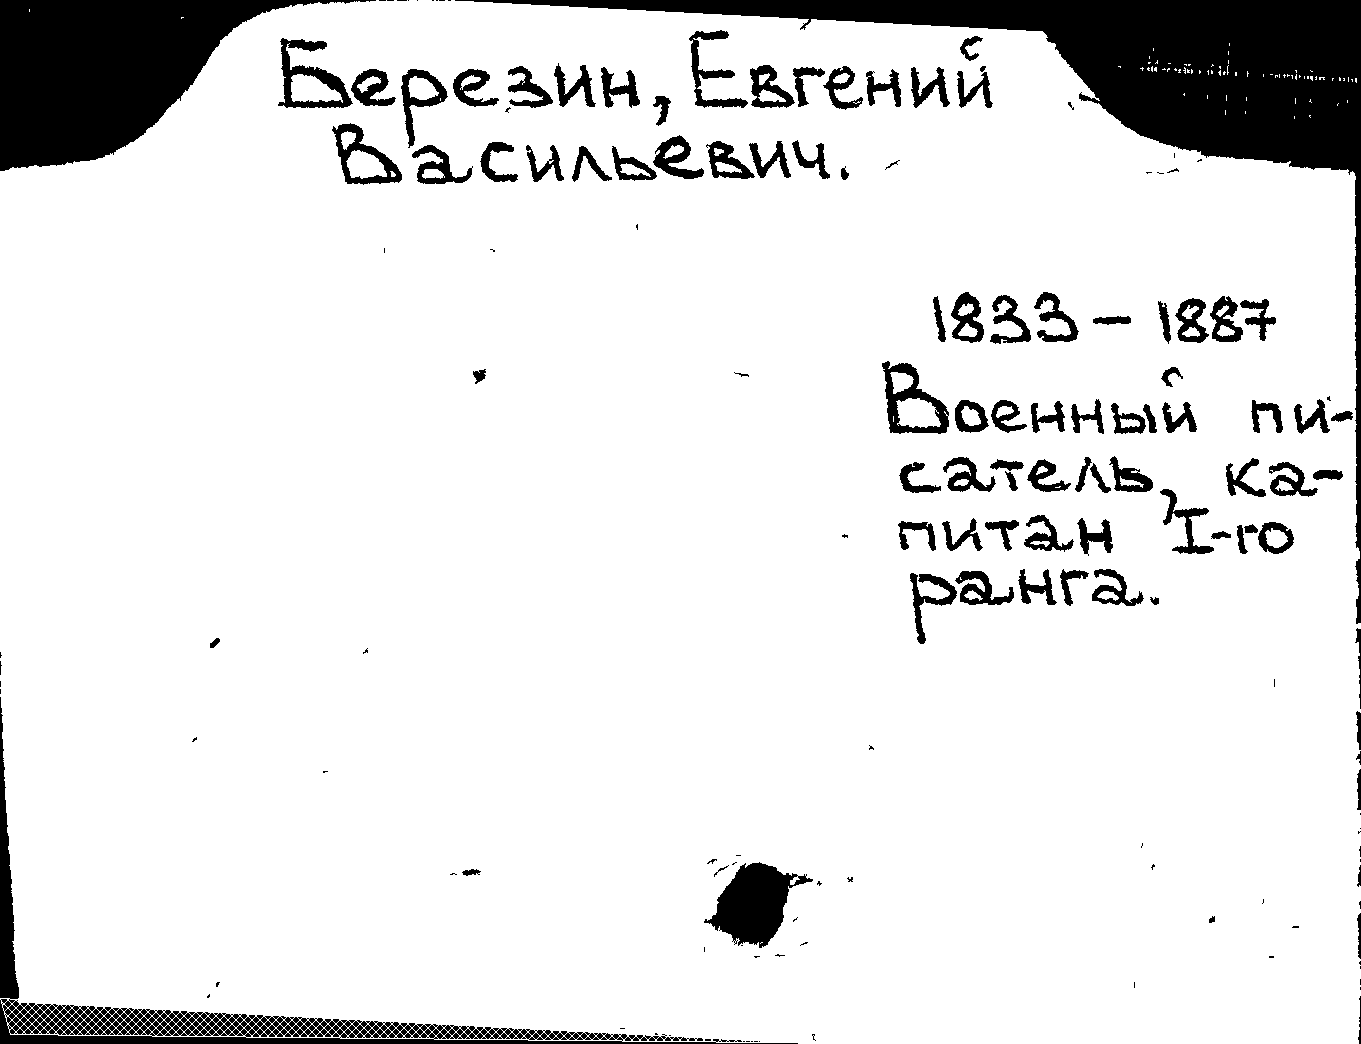 Березин, Евгений
Васильевич.
1833 – 1887
Военный пи-
сатель, ка-
питан I-го
ранга.